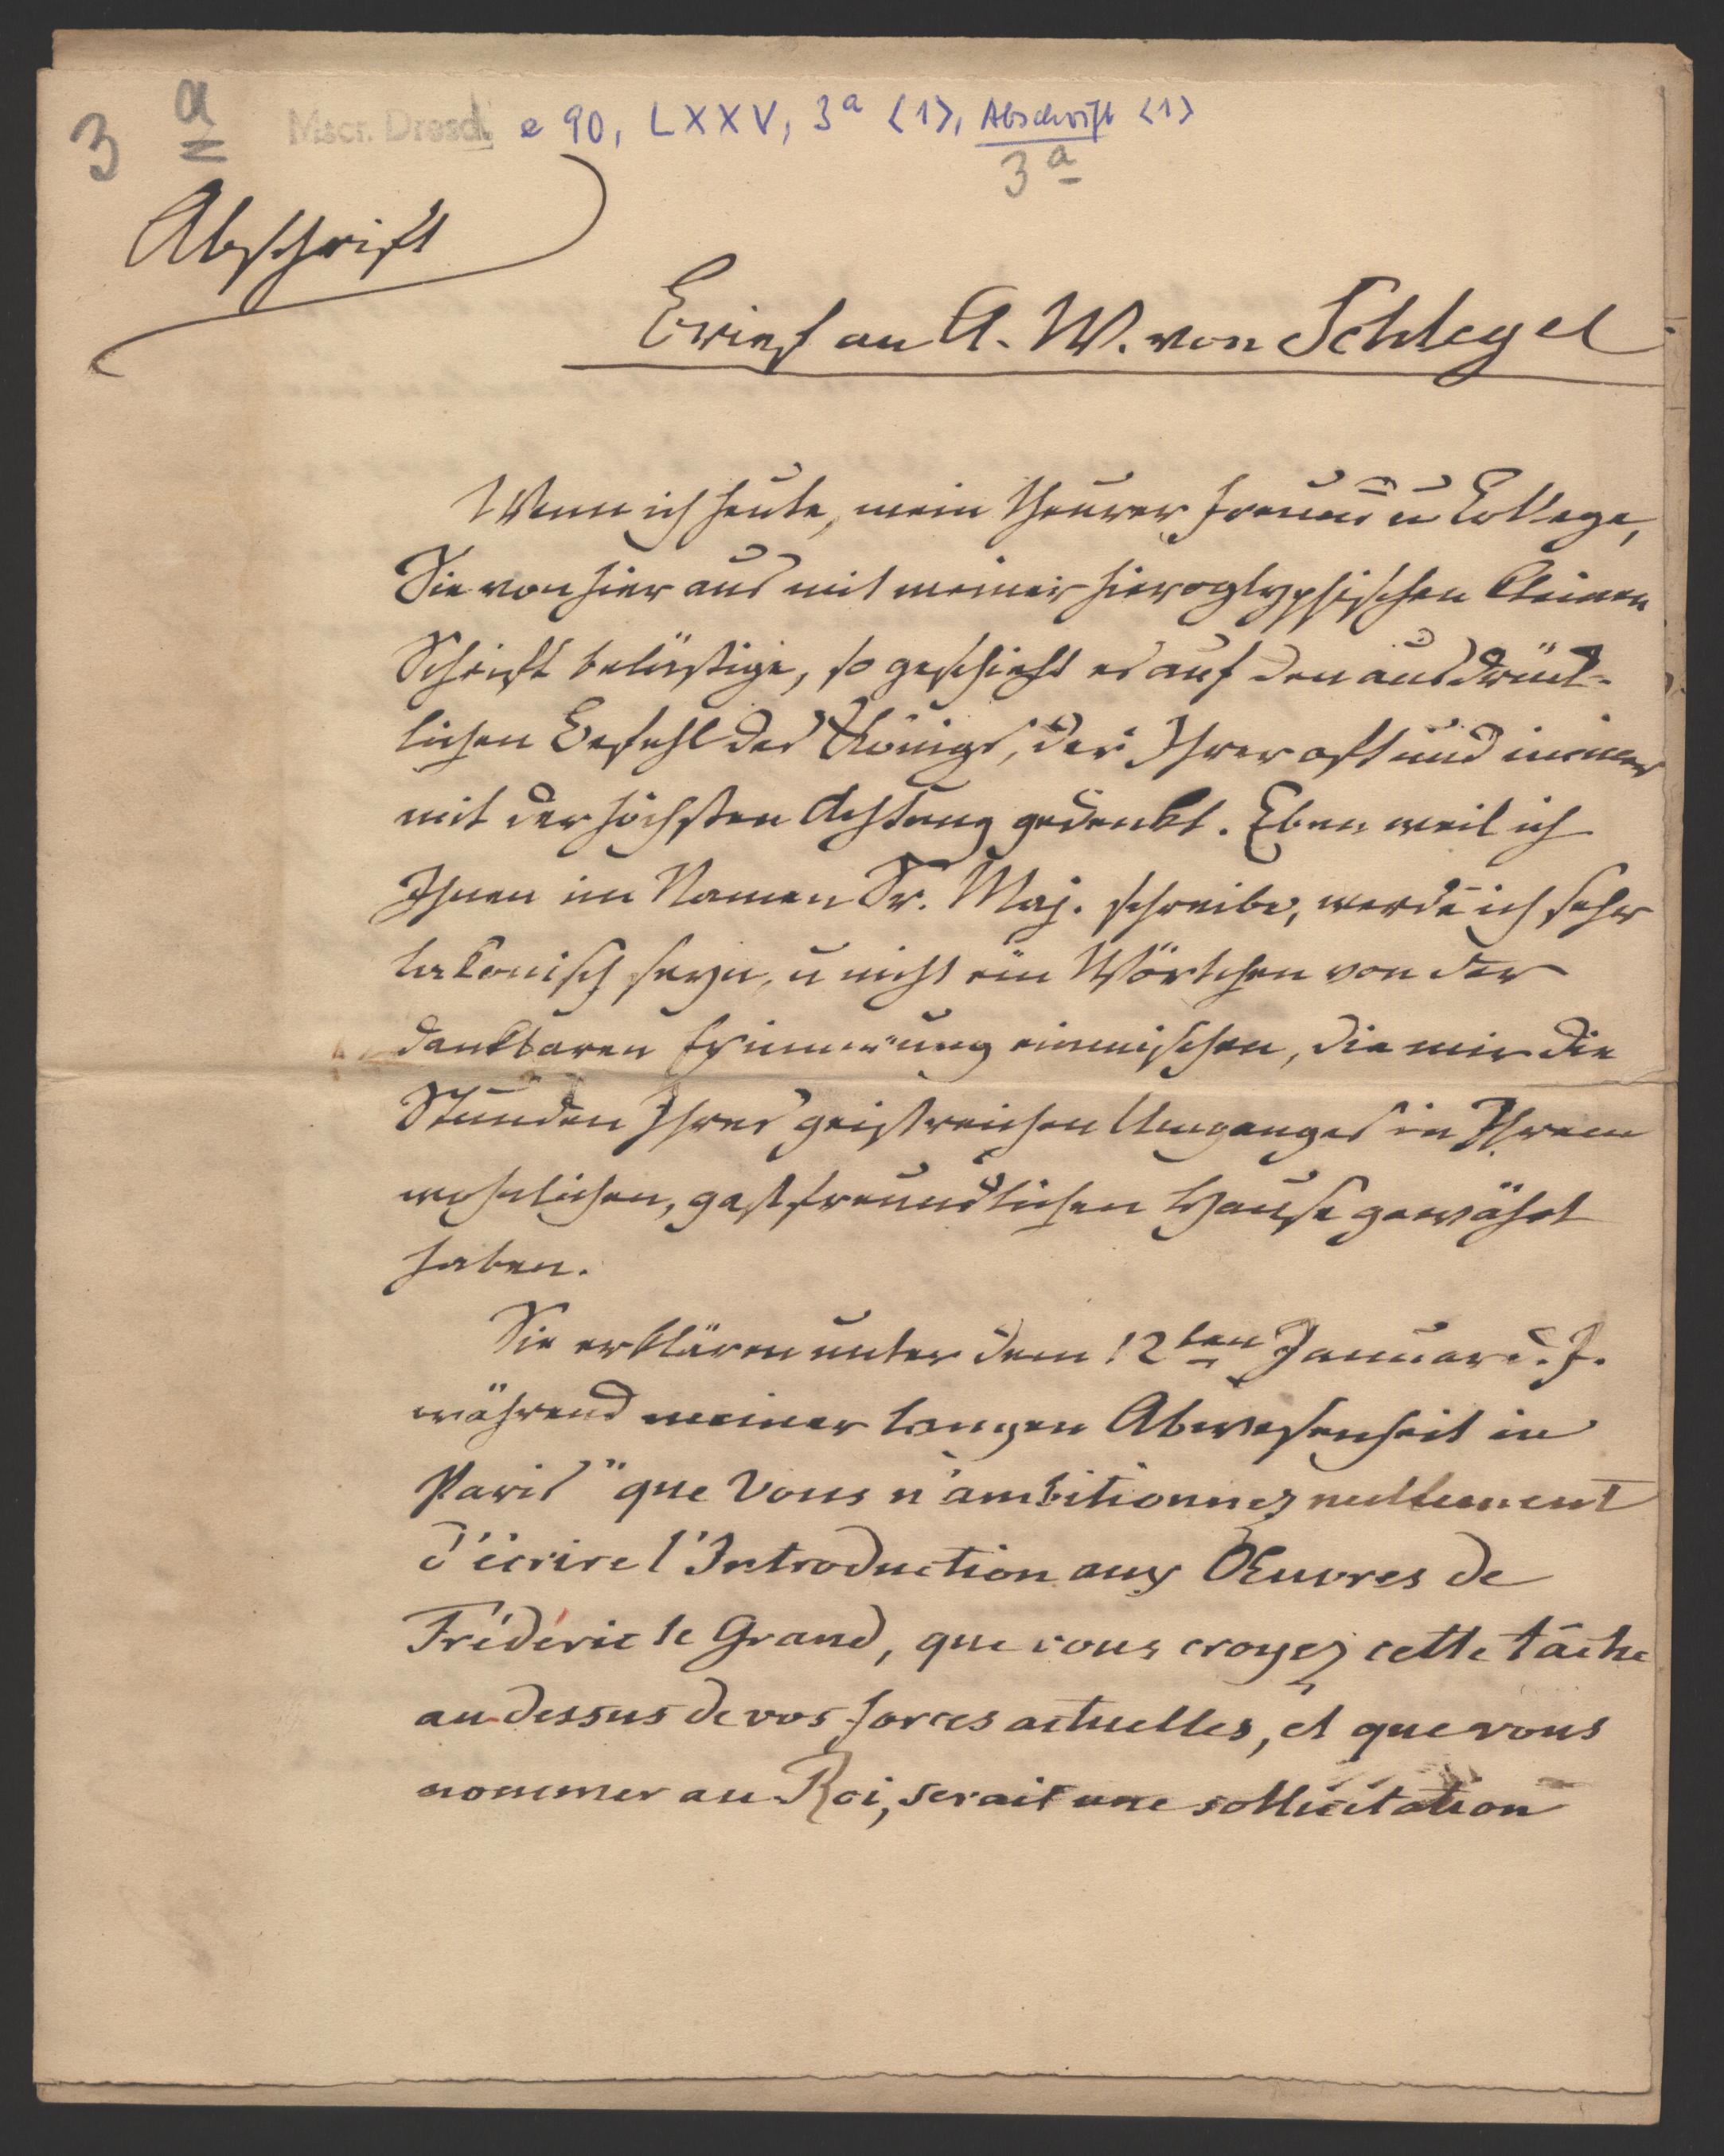 3 a
Mscr. Dresd. e 90, LXXV, 3a <1>, Abschrift <1>
3a
Abschrift
Brief an A. W. von Schlegel
Wenn ich heute, mein theurer Freund u College,
Sie von hier aus mit meiner hieroglyphischen kleinen
Schrift belästige, so geschieht es auf den ausdrück-
lichen Befehl des Königs, der Ihrer oft und immer
mit der höchsten Achtung gedenkt. Eben weil ich
Ihnen im Namen Sr. Maj. schreibe, werde ich sehr
lakonisch seyn, u nicht ein Wörtchen von der
dankbaren Erinnerung einmischen, die mir die
Stunden Ihres geistreichen Umganges in Ihrem
wohnlichen, gastfreundlichen Hause gewährt
haben.
Sie erklären unter dem 12ten Januar d. J.
während meiner langen Abwesenheit in
Paris "que Vous n'ambitionnez nullement
d'écrire l'Introduction aux Œuvres de
Frédéric le Grand, que vous croyez cette tâche
au-dessus de vos forces actuelles, et que vous
nommer au Roi, serait une sollicitation